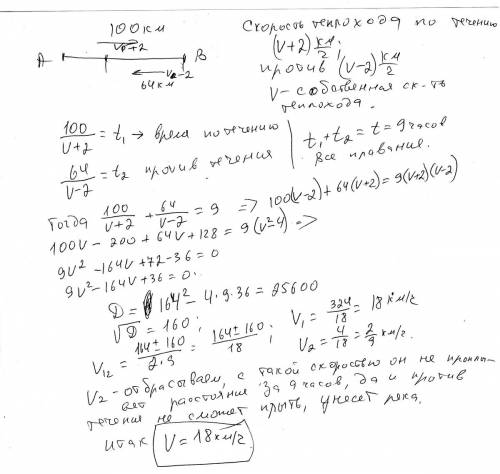 100 км
v+2
А В
v-2
64 км
Скорость теплохода по течению
(v+2) км/г;
против (v-2) км/г
V- собственная ск-ть
теплохода.
100/(V+2) = t₁ → время по течению
64/(V-2) = t₂ против течения
t₁+t₂ = t = 9 часов
все плавание.
Тогда 100/(V+2) + 64/(V-2) = 9 => 100(V-2)+64(V+2)=9(V+2)(V-2)
100V - 200 + 64V + 128 = 9(V²-4) =>
9V² - 164V + 72 - 36 = 0
9V² - 164V + 36 = 0.
D = 164² - 4·9·36 = 25600
√D = 160;
V₁₂ = (164 ± 160)/(2·9) = (164 ± 160)/18;
V₁ = 324/18 = 18 км/г
V₂ = 4/18 = 2/9 км/г.
V₂ - отбрасываем, с такой скоростью он не проплы-
вет расстояния за 9 часов, да и против
течения не сможет плыть, унесет река.
итак V = 18 км/г.